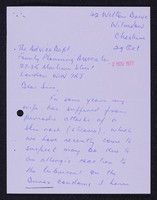 Cheshire
29 Oct
The Advice Dept
Family Planning Assoc
27-35 Mortimer Street
London W1N 7RJ
Dear Sir,
For some years my
wife has suffered from
periodic attacks of a
skin rash
which
we have recently come to
suspect may be due to
an allergic reaction to
the lubricant on the
Durex condoms I have